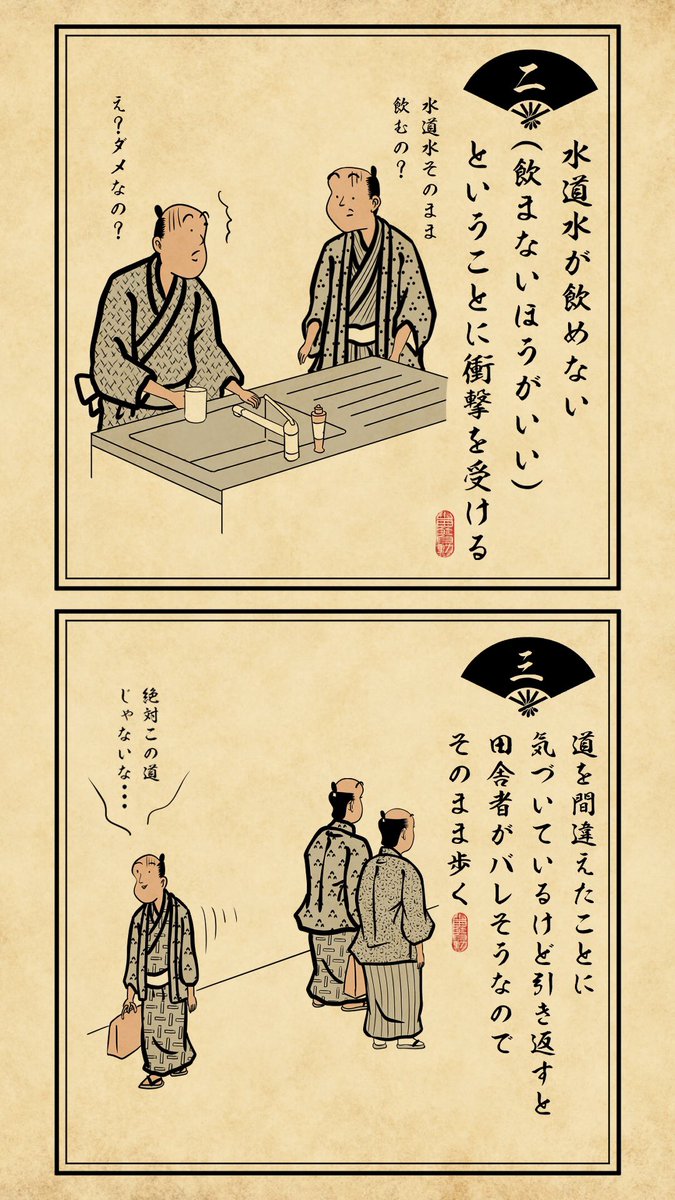 二
水道水が飲めない
(飲まないほうがいい)
ということに衝撃を受ける
水道水そのまま
飲むの?
え?ダメなの?
三
道を間違えたことに
気づいているけど引き返すと
田舎者がバレそうなので
そのまま歩く
絶対この道
じゃないな・・・